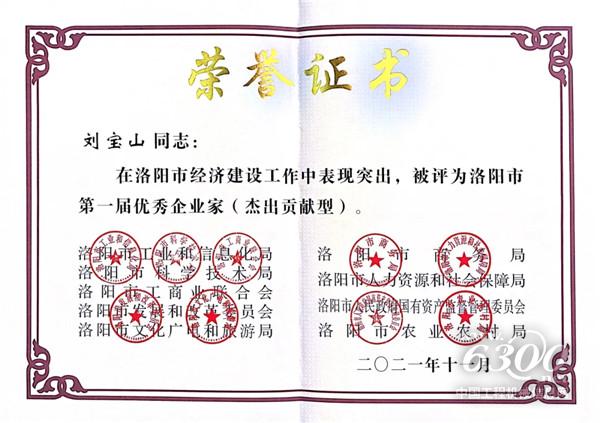 荣誉证书
刘宝山 同志：
在洛阳市经济建设工作中表现突出，被评为洛阳市
第一届优秀企业家（杰出贡献型）。
洛阳市工业和信息化局
洛阳市科学技术局
洛阳市工商业联合会
洛阳市发展和改革委员会
洛阳市文化广电和旅游局
洛阳市商务局
洛阳市人力资源和社会保障局
洛阳市人民政府国有资产监督管理委员会
洛阳市农业农村局
二〇二一年十一月
6300
中国工程机械